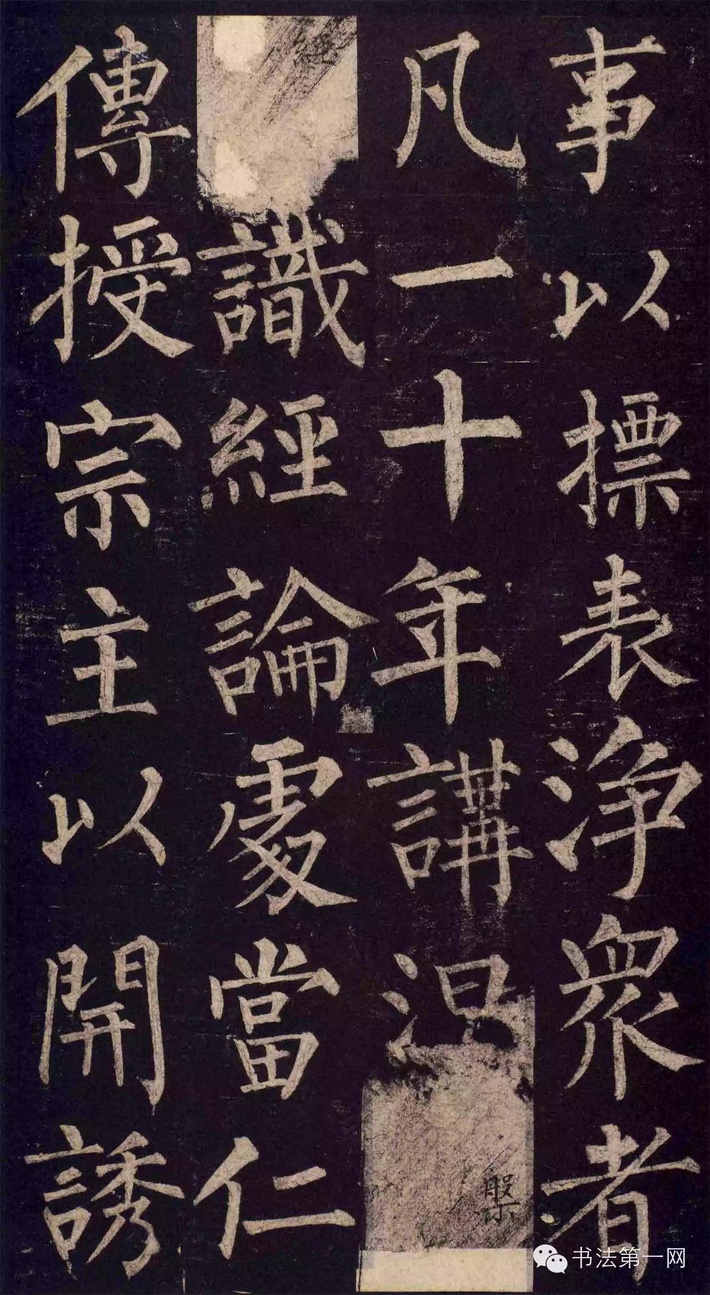 事以摽表浄衆者
凡一十年講涅槃
識經論處當仁
傳授宗主以開誘
书法第一网